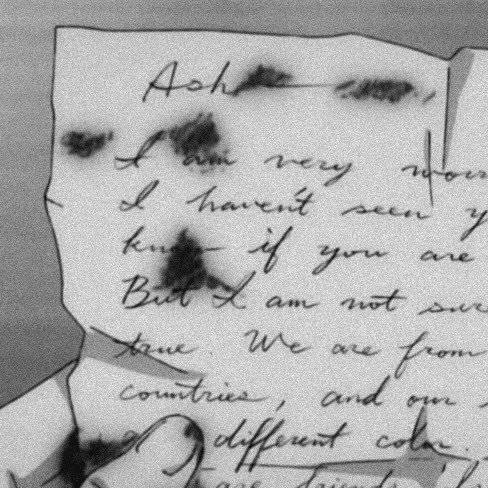 Ash
I am very
I haven't seen
know if you are
But I am not sure
true. We are from
countries, and our
different color.
are friends